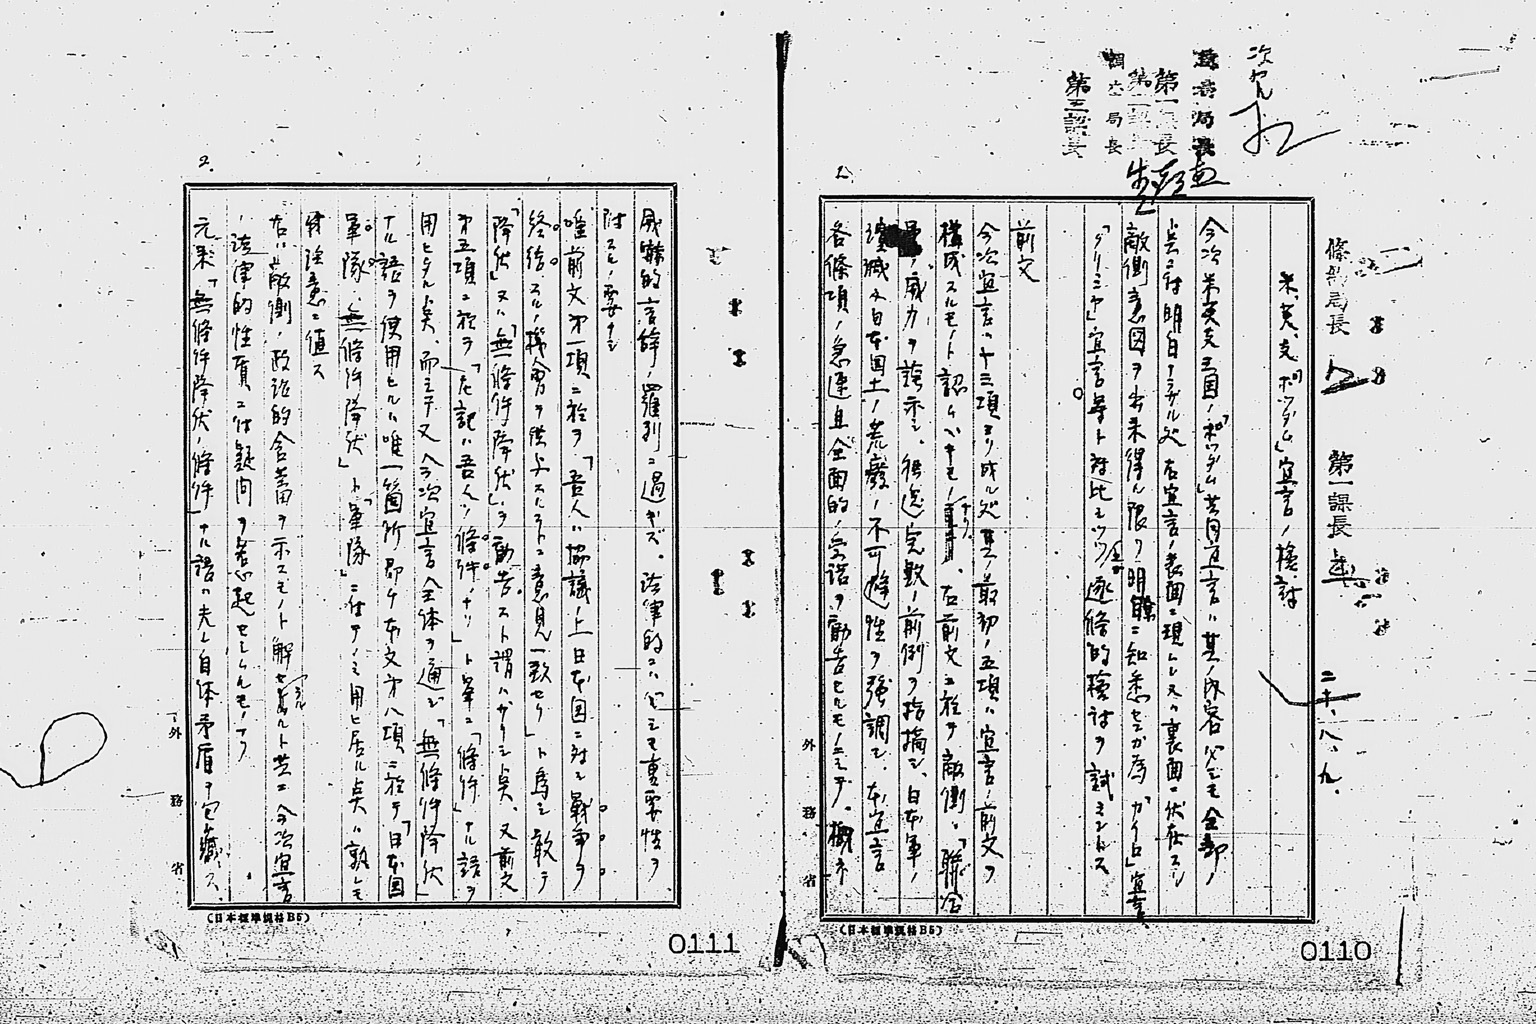 條約局長
第一課長
二十、八、九、
次官
局長
第一課長
第二課長
局長
第三課長
1.
米、英、支「ポツダム」宣言ノ検討
今次米英支三国ノ「ポツダム」共同宣言ハ其ノ内容必ズシモ全部ノ
点ニ付明白ナラザル処右宣言ノ表面ニ現レ又ハ裏面ニ伏在スル
敵側意図ヲ出来得ル限リ明瞭ニ知悉センガ為「カイロ」宣言
「クリミヤ」宣言等ト対比シツツ逐條的検討ヲ試ミントス
前文
今次宣言ハ十三項ヨリ成ル処其ノ最初ノ五項ハ宣言ノ前文ヲ
構成スルモノト認ムベキモノナリ、右前文ニ於テ敵側ハ「聯合
軍」ノ威力ヲ誇示シ、独逸完敗ノ前例ヲ指摘シ、日本軍ノ
壊滅及日本国土ノ荒廃ノ不可避性ヲ強調シ、本宣言
各條項ノ急速且全面的ノ受諾ヲ勧告セルモノニシテ、概ネ
外務省
(日本標準規格B5)
0110
2.
威嚇的言辞ノ羅列ニ過ギズ。法律的ニハ必ズシモ重要性ヲ
附スルノ要ナシ
唯前文第一項ニ於テ「吾人ハ協議ノ上日本国ニ対シ戦争ヲ
終結スルノ機会ヲ供与スルコトニ意見一致セリ」ト為シ敢テ
「降伏」又ハ「無條件降伏」ヲ勧告スト謂ハザリシ点、又前文
第五項ニ於テ「左記ハ吾人ノ條件ナリ」ト単ニ「條件」ナル語ヲ
用ヒタル点、而シテ又今次宣言全体ヲ通ジ「無條件降伏」
ナル語ヲ使用セルハ唯一箇所即チ本文第八項ニ於テ「日本国
軍隊ノ無條件降伏」ト「軍隊」ニ付テノミ用ヒ居ル点ハ孰レモ
特注意ニ値ス
右ハ敵側ノ政治的含蓄ヲ示スモノト解セラルルト共ニ今次宣言
ノ法律的性質ニ付疑問ヲ惹起セシムルモノナリ
元来「無條件降伏ノ條件」ナル語ハ夫レ自体矛盾ヲ包蔵ス、
外務省
(日本標準規格B5)
0111